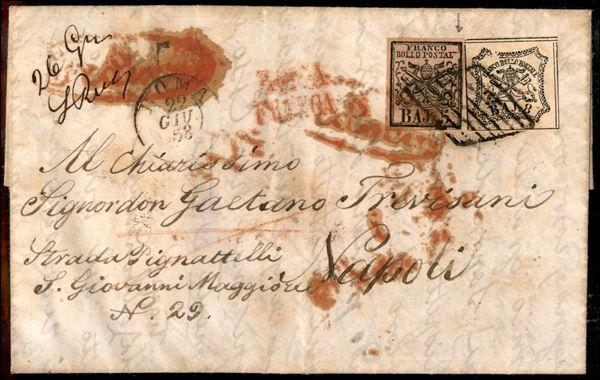 26 Giu
ROMA
22
GIU
58
FRANCA
FRANCO
BOLLO POSTALE
BAJ
FRANCO BOLLO POSTALE
BAJ 8
Al Chiarissimo
Signor don Gaetano Trevisani
Napoli
Strada Pignattelli
S. Giovanni Maggiore
N. 29.